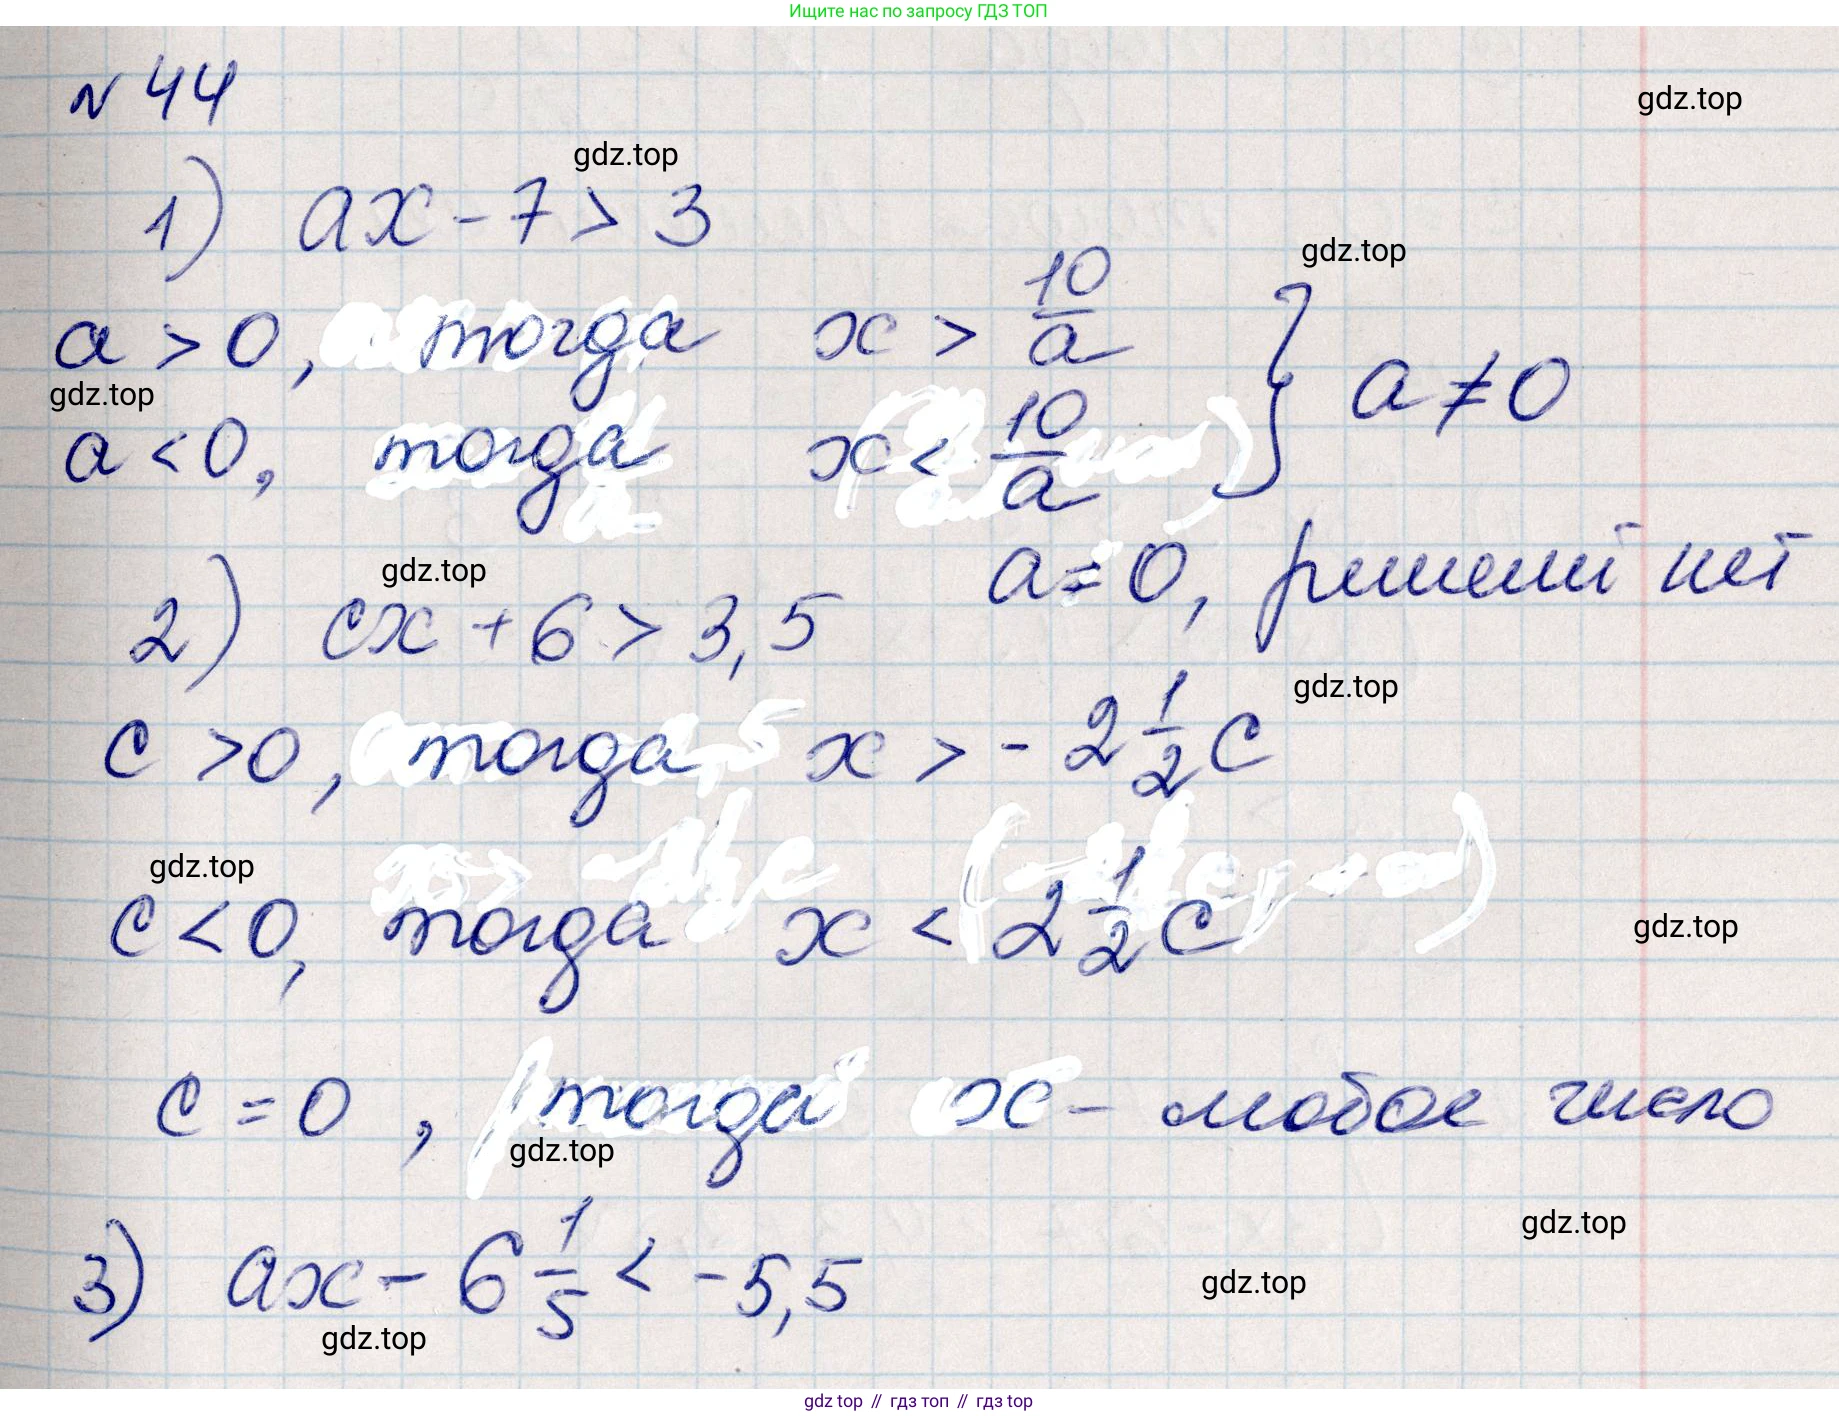 Ищите нас по запросу ГДЗ ТОП
N 44
gdz.top
gdz.top
1) ax - 7 > 3
gdz.top
a > 0, тогда x > 10/a
a ≠ 0
gdz.top
a < 0, тогда x < 10/a
gdz.top
a = 0, решений нет
2) cx + 6 > 3,5
gdz.top
c > 0, тогда x > - 2 1/2 c
gdz.top
c < 0, тогда x < 2 1/2 c
gdz.top
c = 0, тогда x - любое число
gdz.top
gdz.top
3) ax - 6 1/5 < -5,5
gdz.top
gdz.top
gdz top // гдз топ // gdz top